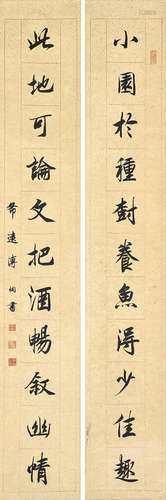 小園於種樹養魚得少佳趣
此地可論文把酒暢敘幽情
希遠溥伒書